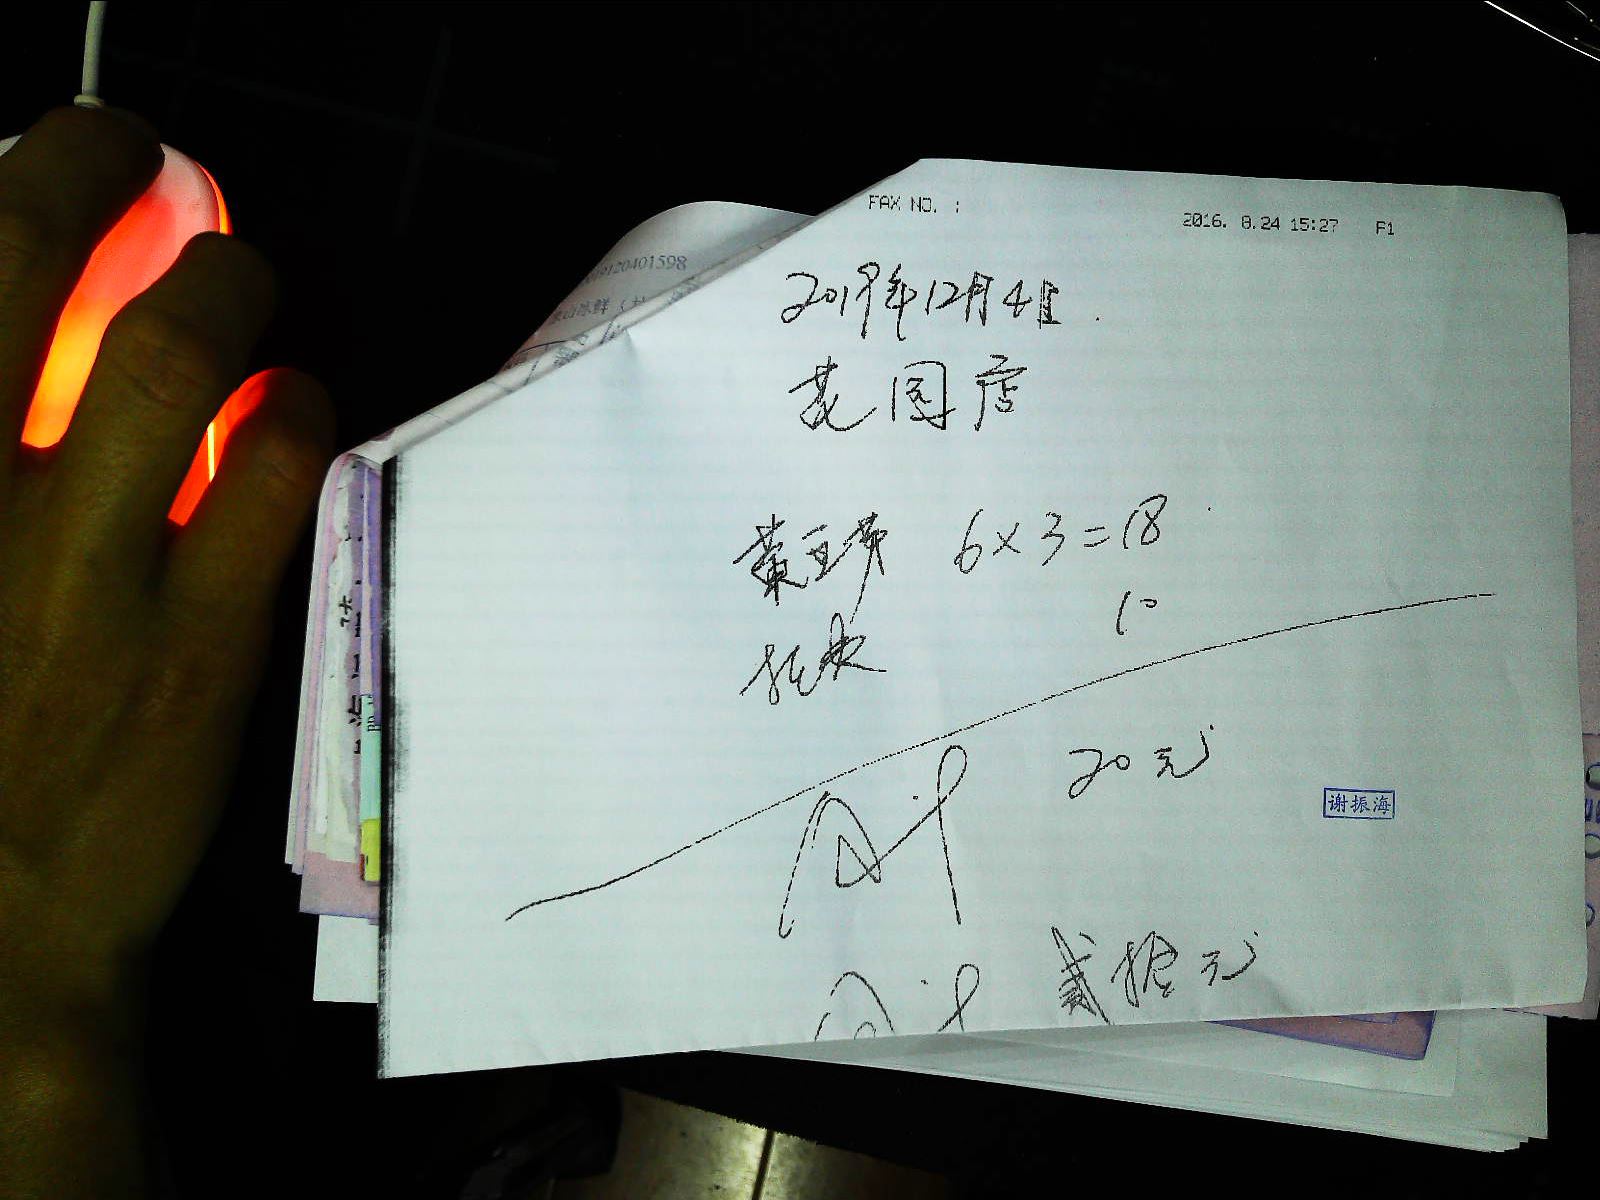 FAX NO. :
2016. 8.24 15:27 P1
19120401598
2019年12月4日
花园店
黄豆芽 6×3=18
10
20元
谢振海
贰拾元